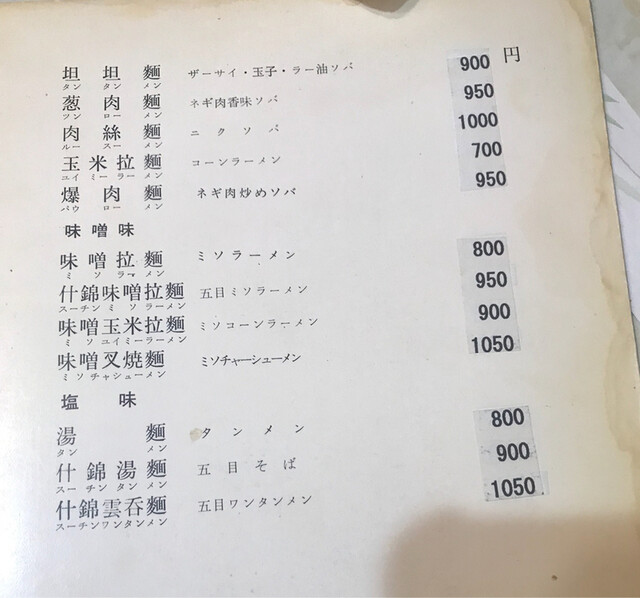 坦坦麵 ザーサイ・玉子・ラー油ソバ 900 円
タン タン メン
葱肉麵 ネギ肉香味ソバ 950
ツン ロー メン
肉絲麵 ニクソバ 1000
ルー スー メン
玉米拉麵 コーンラーメン 700
ユイ ミー ラー メン
爆肉麵 ネギ肉炒めソバ 950
バウ ロー メン
味噌味
味噌拉麵 ミソラーメン 800
ミ ソ ラー メン
什錦味噌拉麵 五目ミソラーメン 950
スーチン ミ ソ ラーメン
味噌玉米拉麵 ミソコーンラーメン 900
ミ ソ ユイミーラーメン
味噌叉焼麵 ミソチャーシューメン 1050
ミ ソ チャシューメン
塩味
湯麵 タンメン 800
タン メン
什錦湯麵 五目そば 900
スー チン タン メン
什錦雲呑麵 五目ワンタンメン 1050
スーチンワンタンメン